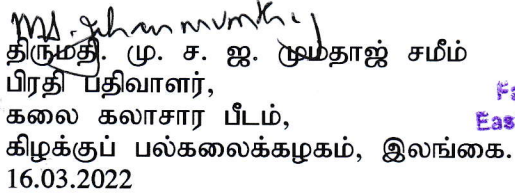 திருமதி. மு. ச. ஐ. மும்தாஜ் சமீம்
பிரதி பதிவாளர்,
கலை கலாசார பீடம்,
கிழக்குப் பல்கலைக்கழகம், இலங்கை.
16.03.2022
Fa
Eas